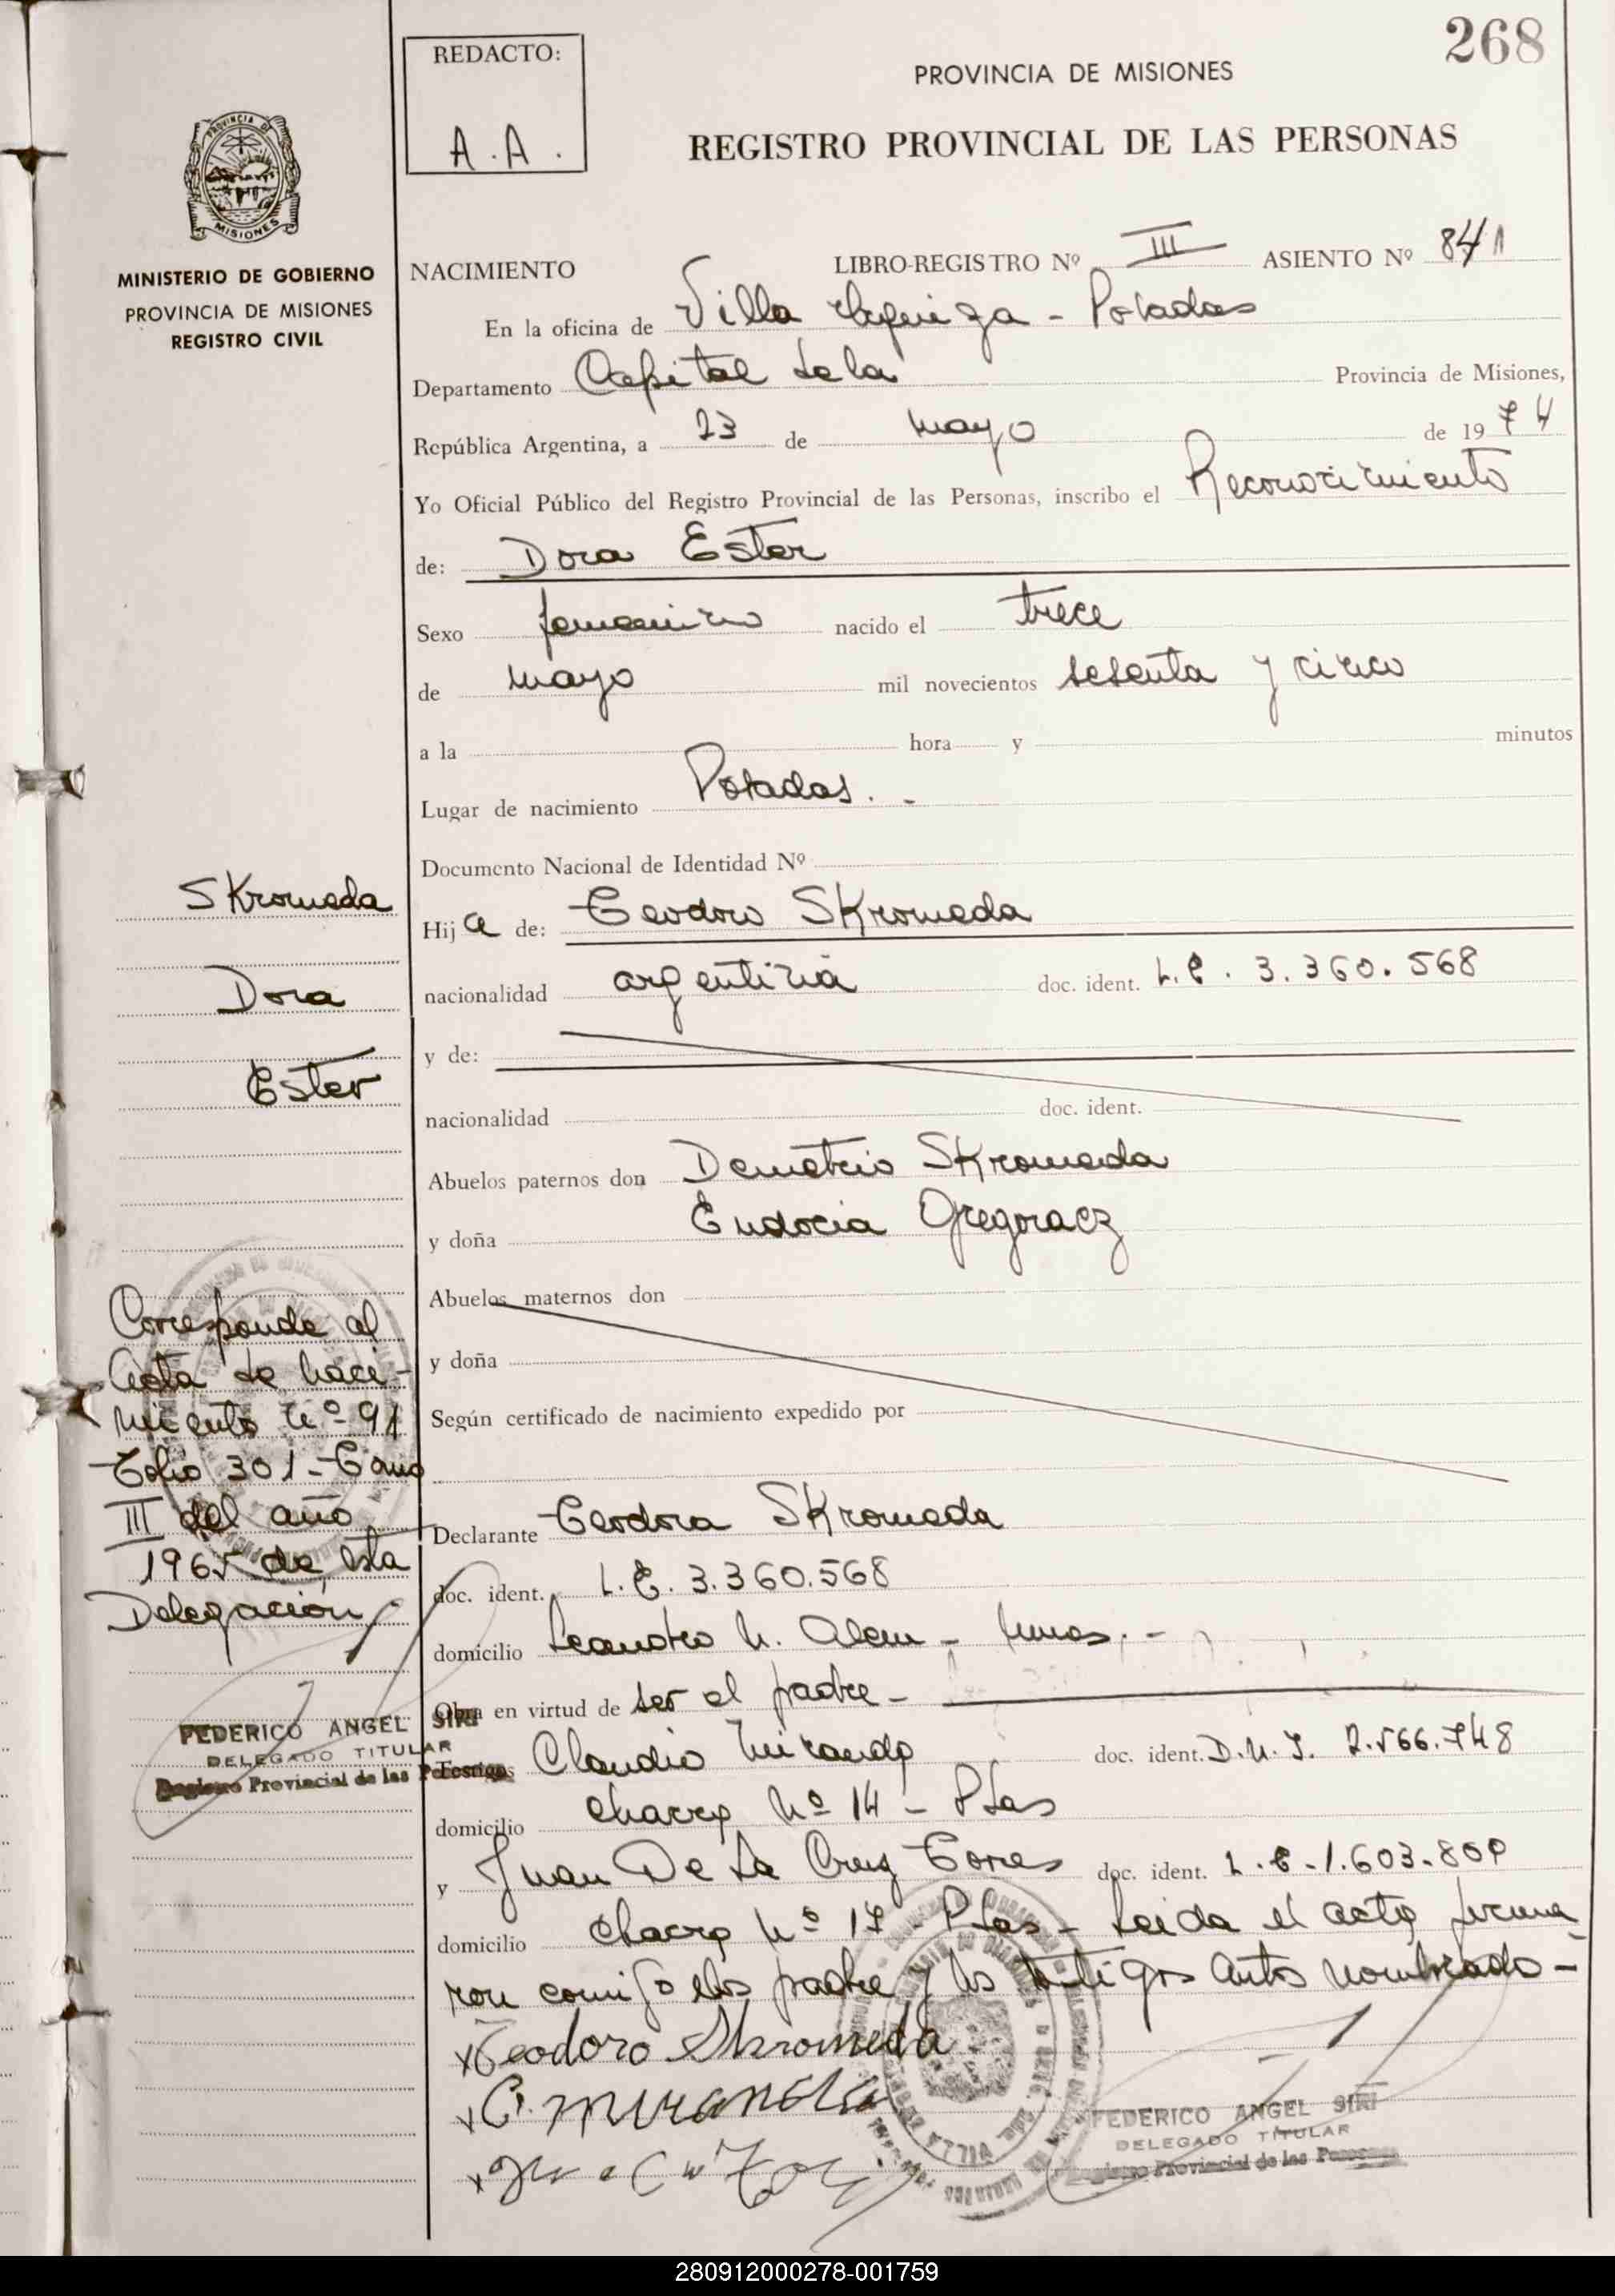 268
REDACTO:
A.A.
PROVINCIA DE MISIONES
REGISTRO PROVINCIAL DE LAS PERSONAS
PROVINCIA DE
MISIONES
MINISTERIO DE GOBIERNO
PROVINCIA DE MISIONES
REGISTRO CIVIL
NACIMIENTO LIBRO-REGISTRO Nº III ASIENTO Nº 841
En la oficina de Villa Urquiza - Posadas
Departamento Capital de la Provincia de Misiones,
República Argentina, a 23 de mayo de 1974
Yo Oficial Público del Registro Provincial de las Personas, inscribo el Reconocimiento
de: Dora Ester
Sexo femenino nacido el trece
de mayo mil novecientos sesenta y cinco
a la hora y minutos
Lugar de nacimiento Posadas. -
Documento Nacional de Identidad Nº
Hija de: Teodoro Skromeda
nacionalidad argentina doc. ident. L.E. 3.360.568
y de:
nacionalidad doc. ident.
Abuelos paternos don Demetrio Skromeda
y doña Eudocia Gregoracz
Abuelos maternos don
y doña
Según certificado de nacimiento expedido por
Declarante Teodoro Skromeda
doc. ident. L.E. 3.360.568
domicilio Leandro N. Alem -
Obra en virtud de ser el padre -
Testigos Claudio Miranda doc. ident. D.N.I. 2.566.748
domicilio chacra Nº 14 - Pdas
y Juan De La Cruz Torres doc. ident. L.E. 1.603.809
domicilio chacra Nº 17 - Pdas - Leida el acta firma-
ron comigo el padre y los testigos antes nombrado -
x Teodoro Skromeda
x C. Miranda
FEDERICO ANGEL SIRI
DELEGADO TITULAR
Registro Provincial de las Personas
Skromeda
Dora
Ester
Corresponde al
Acta de naci-
miento Nº 91
Folio 301 - Tomo
III del año
1965 de esta
Delegación
FEDERICO ANGEL SIRI
DELEGADO TITULAR
Registro Provincial de las Personas
280912000278-001759